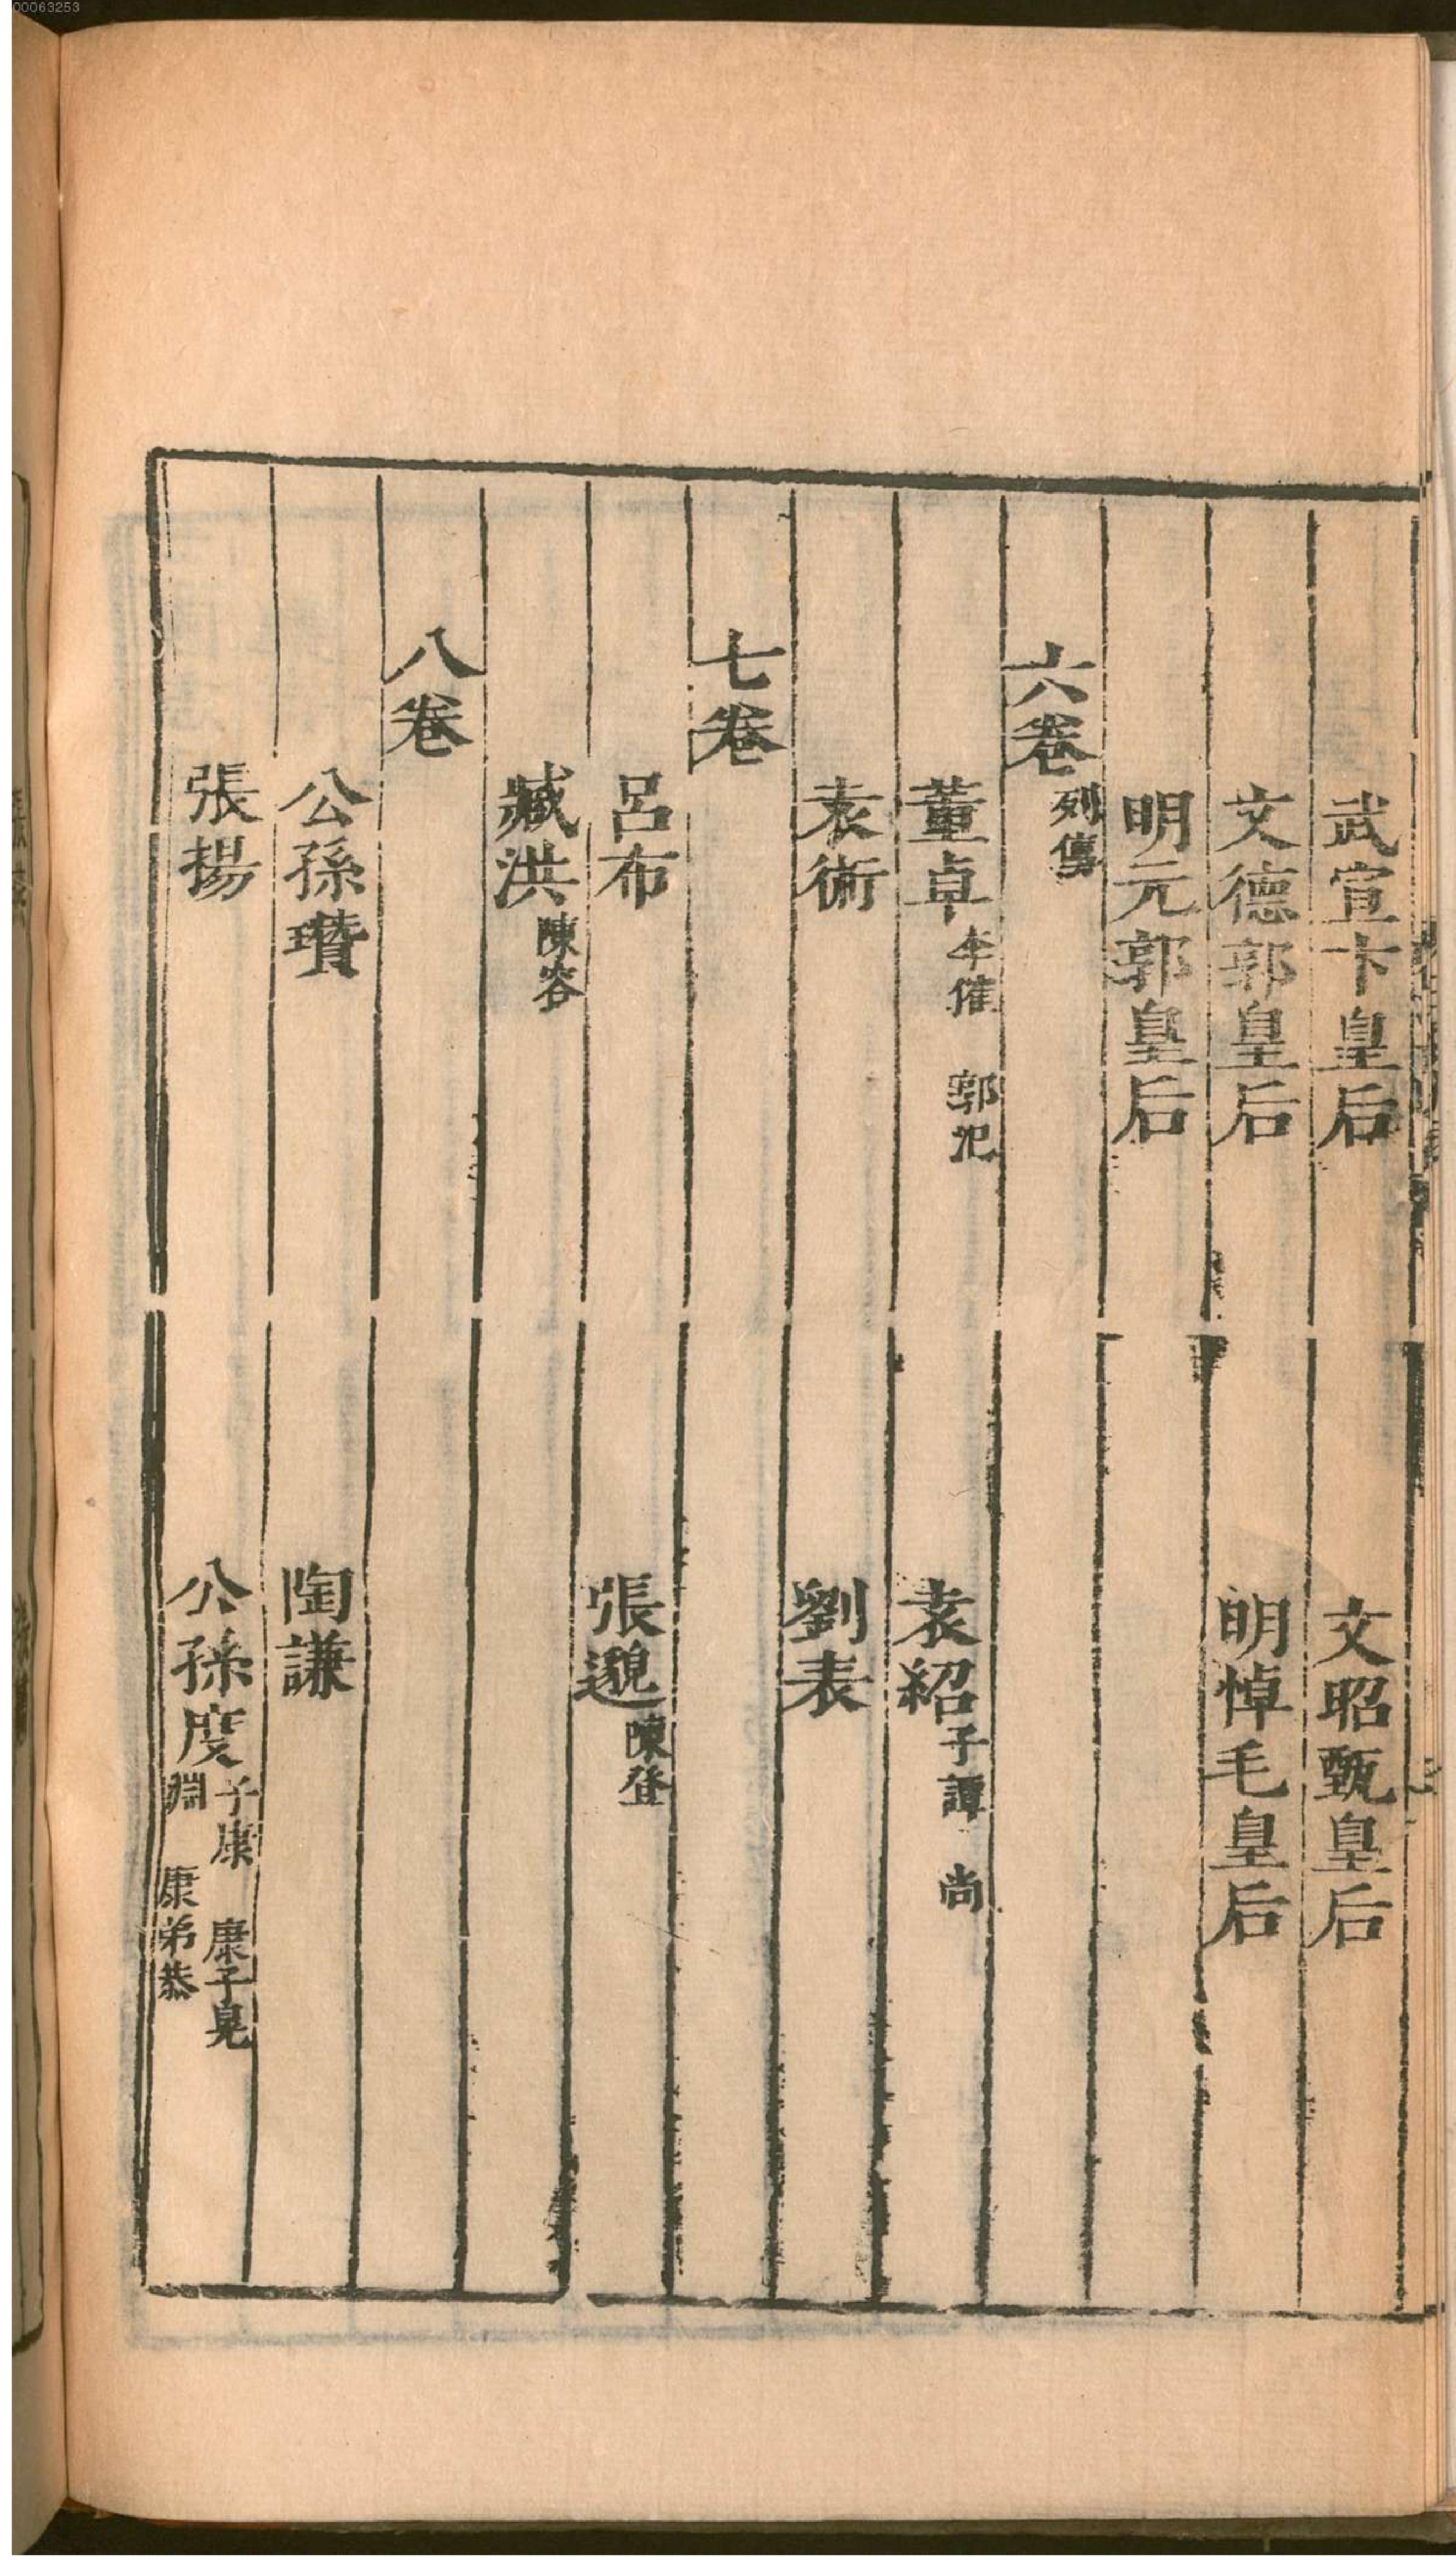 00063253
武宣卞皇后 文昭甄皇后
文德郭皇后 明悼毛皇后
明元郭皇后
六卷 列傳
董卓 李傕 郭汜 袁紹 子譚 尚
袁術 劉表
七卷
呂布 張邈 陳登
臧洪 陳容
八卷
公孫瓚 陶謙
張揚 公孫度 子康 康子晃 淵 康弟恭